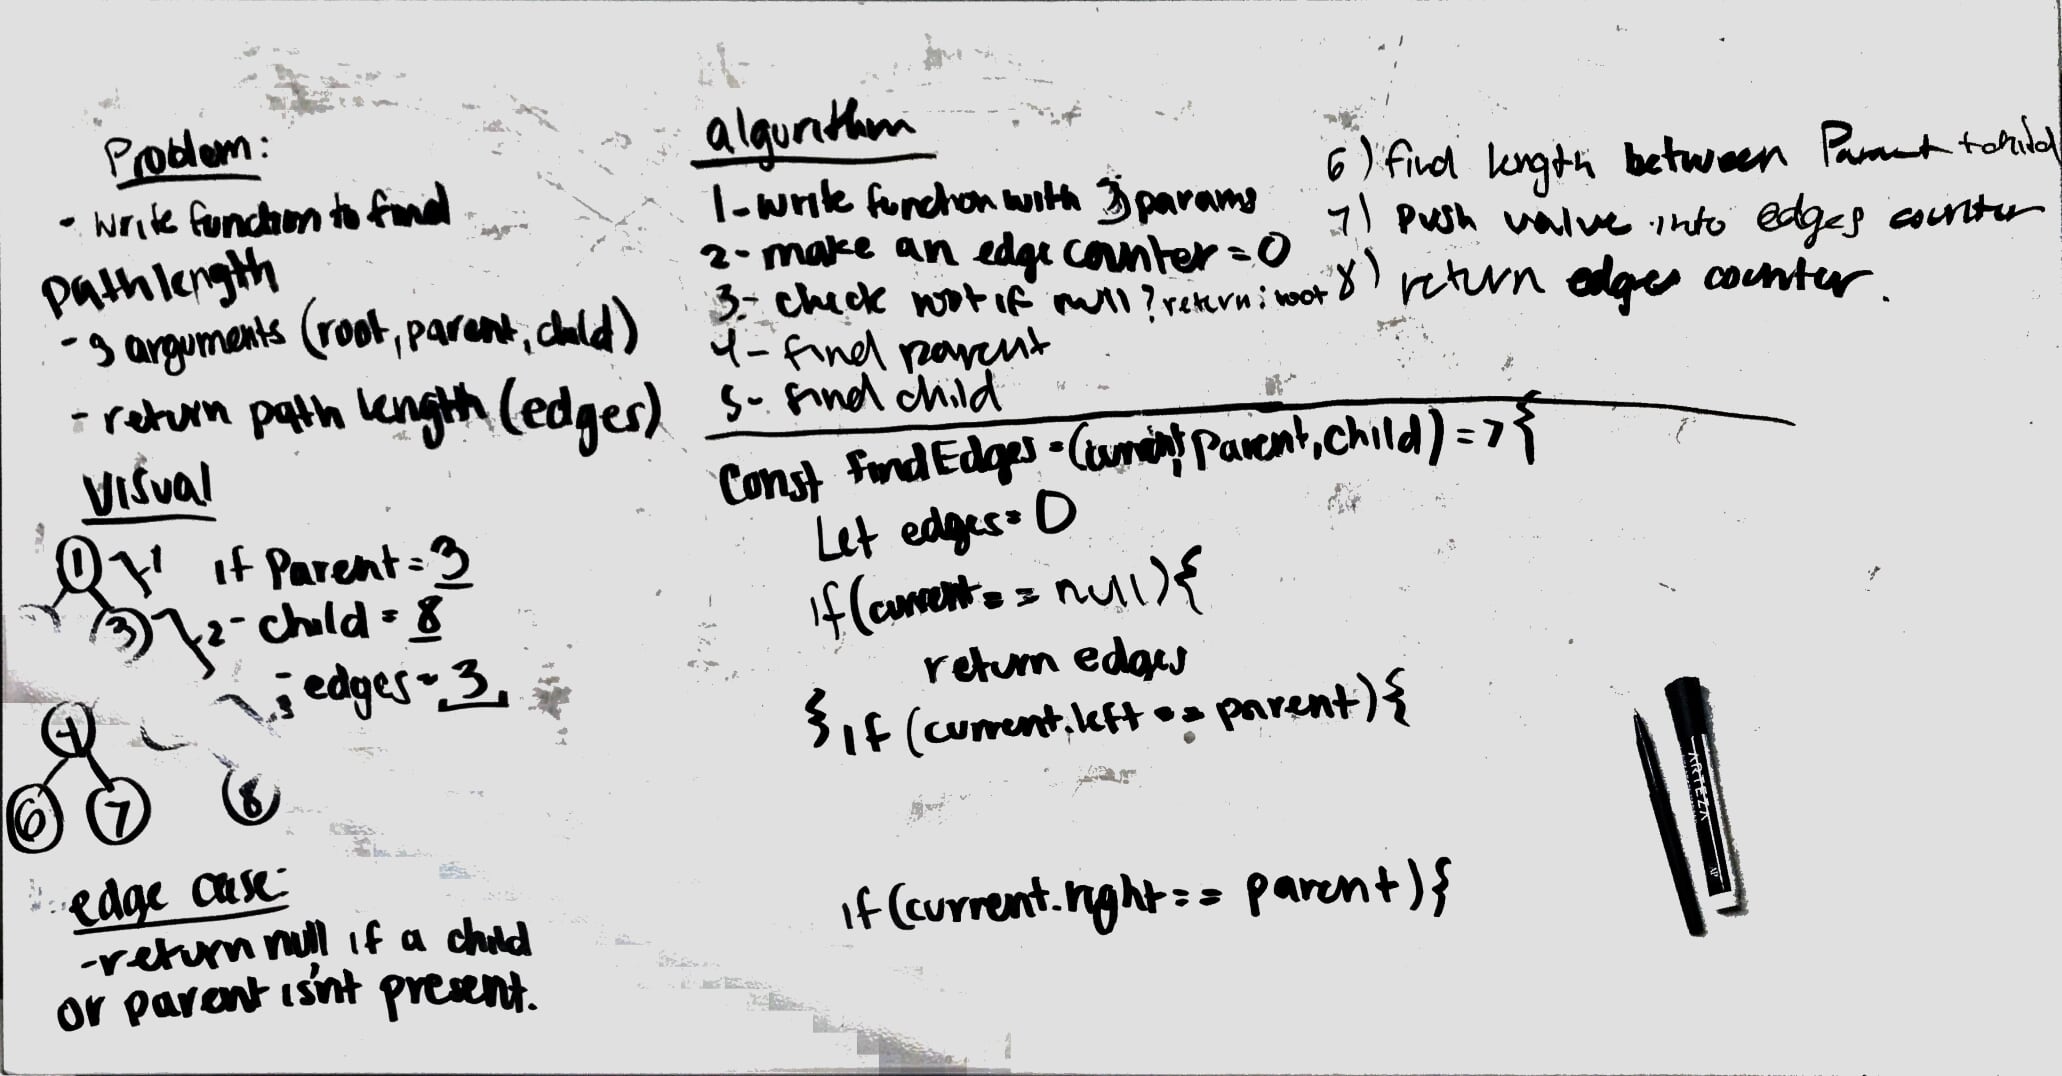 Problem:
- write function to find
path length
- 3 arguments (root, parent, child)
- return path length (edges)
Visual
1 } 1 if Parent = 3
3 } 2 - child = 8
3 edges = 3
4
6 7 8
edge case:
- return null if a child
or parent isn't present.
algorithm
1 - write function with 3 params
2 - make an edge counter = 0
3 - check root if null ? return : root
4 - find parent
5 - find child
6) find length between Parent to child
7) push value into edges counter
8) return edges counter.
Const findEdges = (current, Parent, child) => {
Let edges = 0
if (current == null) {
return edges
} if (current.left == parent) {
if (current.right == parent) {
ARTEZA